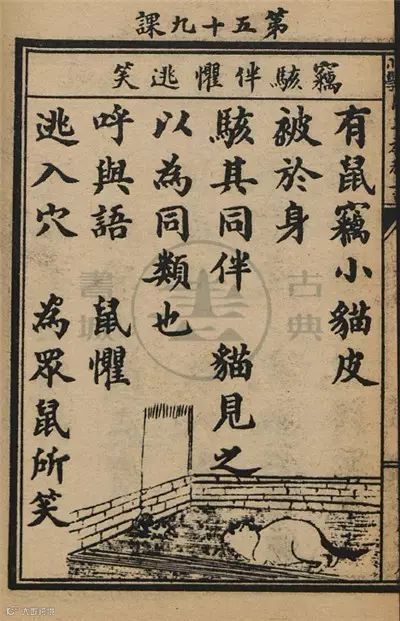 第五十九課
竊駭伴懼逃笑
有鼠竊小貓皮
被於身
駭其同伴 貓見之
以為同類也
呼與語 鼠懼
逃入穴 為眾鼠所笑
古典書城